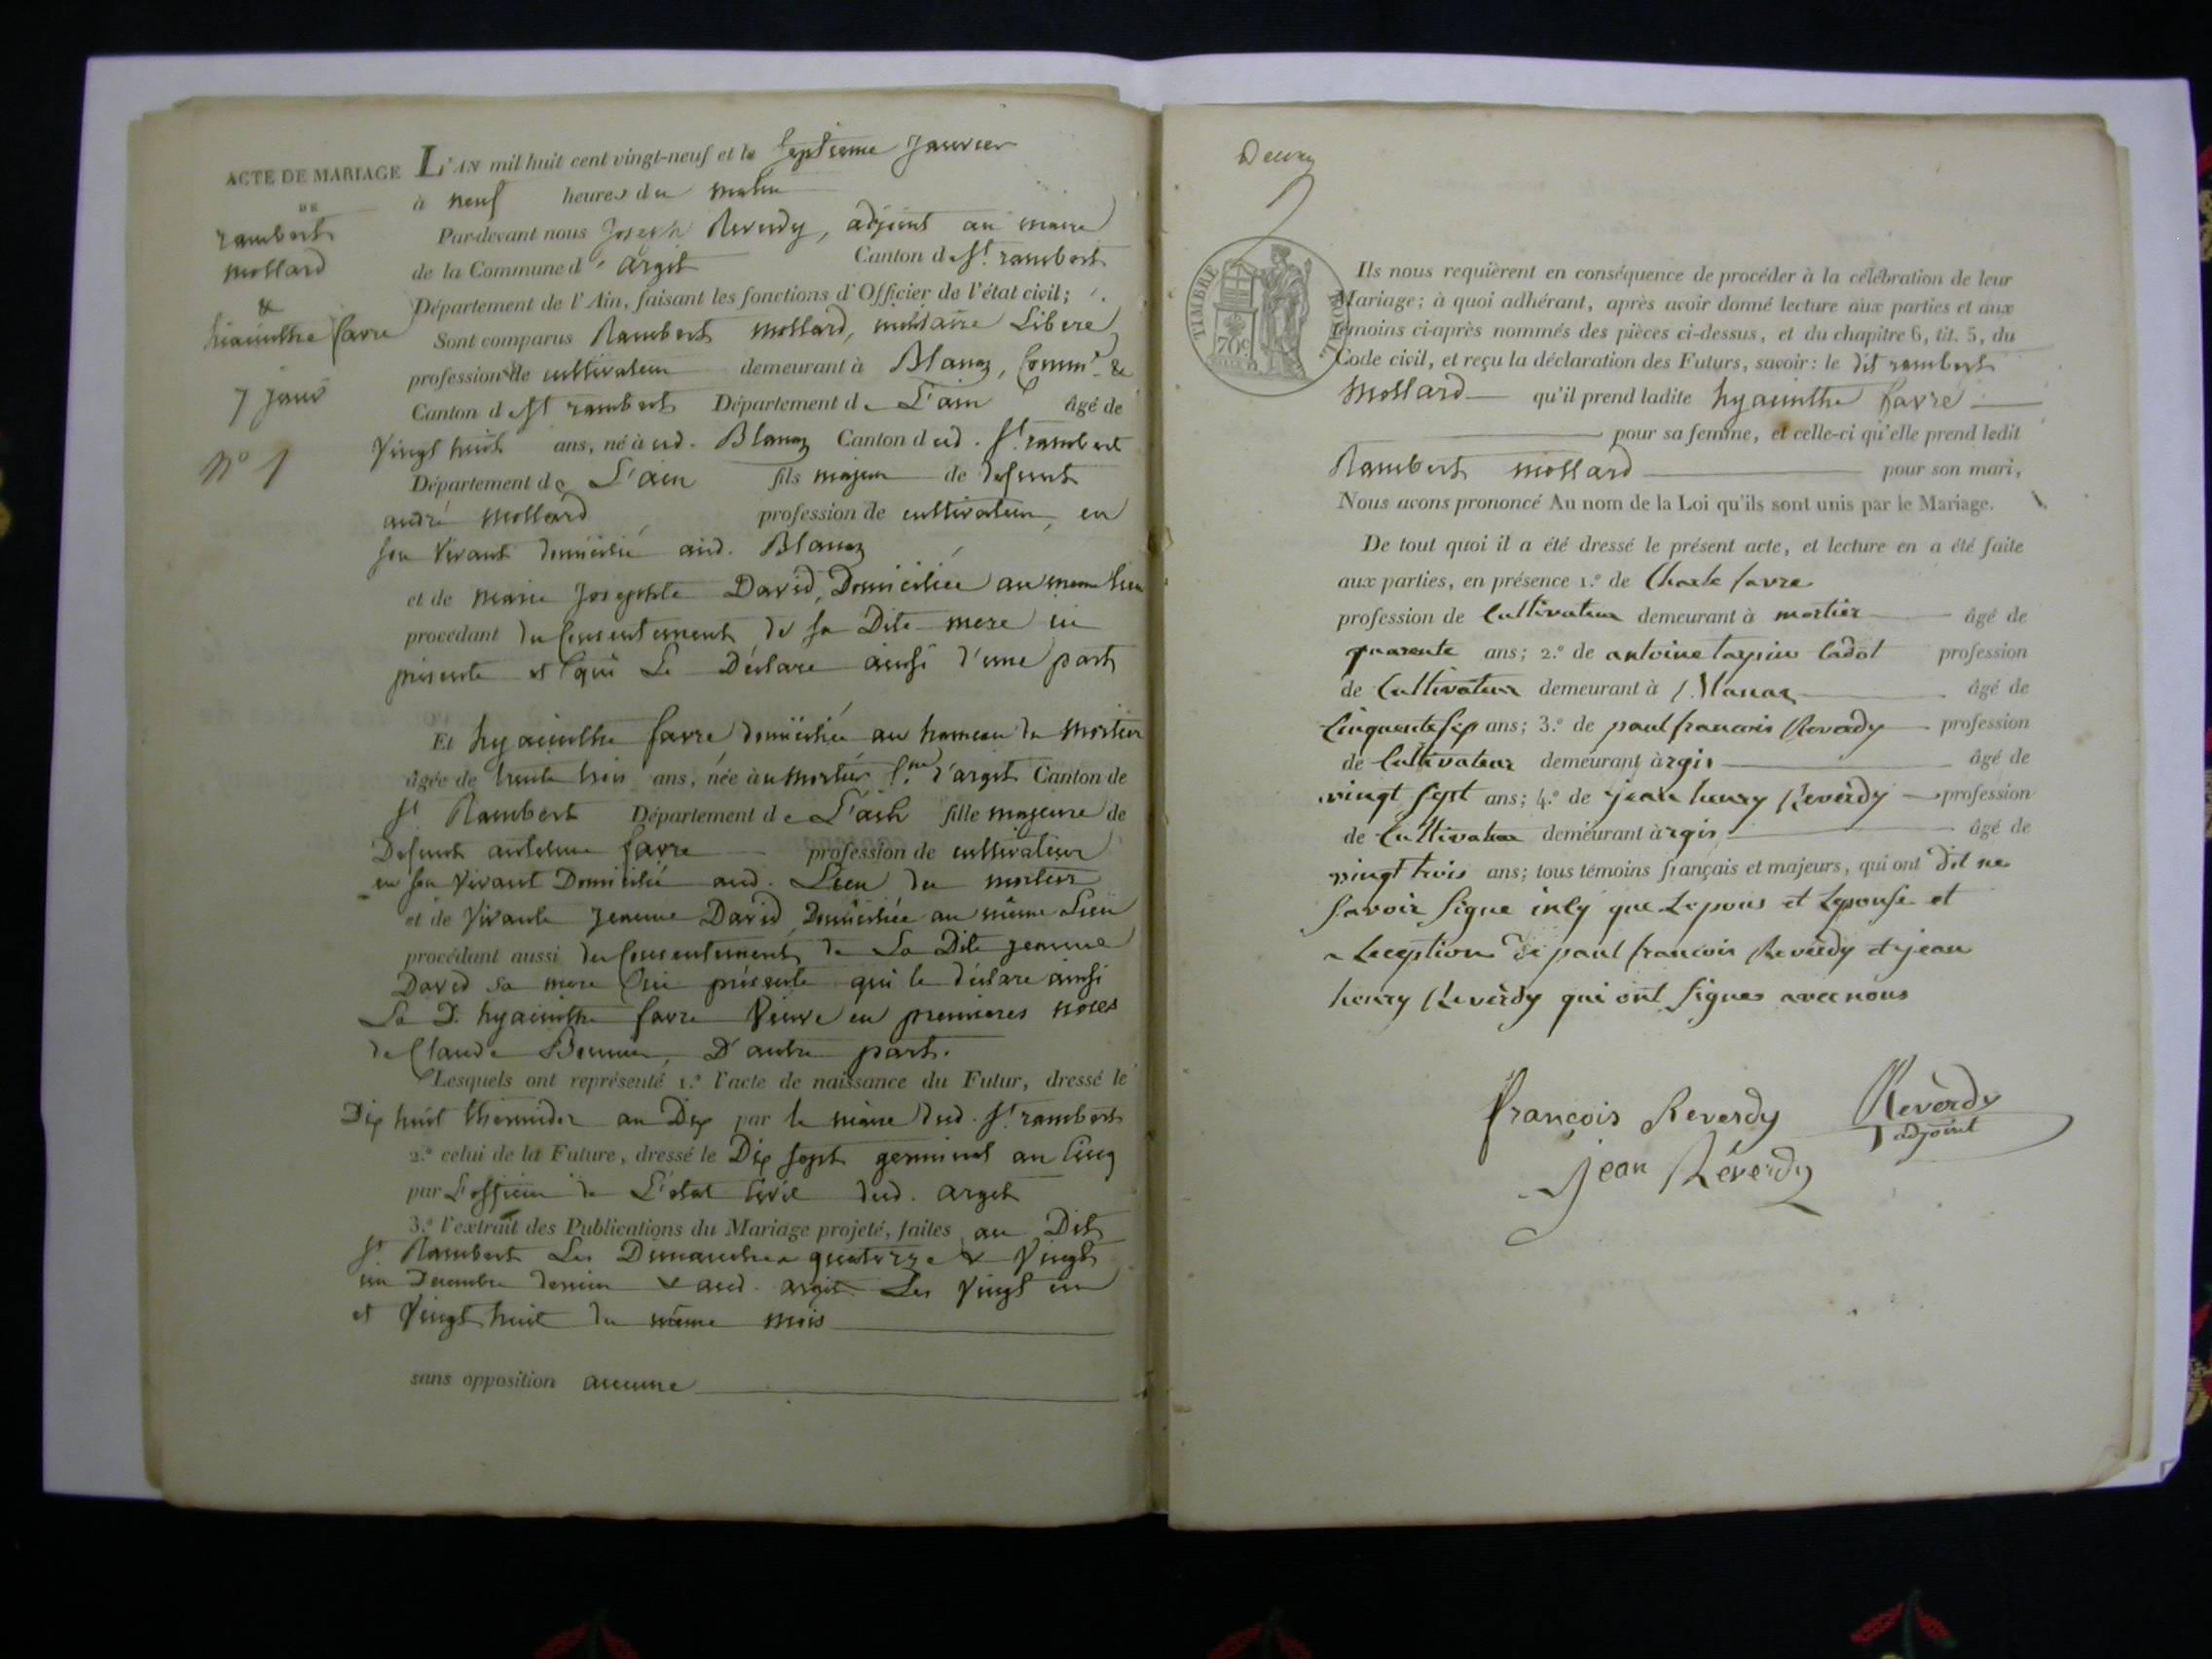 ACTE DE MARIAGE
DE
rambert
mollard
&
hiacinthe favre
7 janv
N° 1
L'AN mil huit cent vingt-neuf et le septieme janvier
à neuf heures du matin
Par-devant nous Joseph Reverdy, adjoint au maire
de la Commune d'argit Canton de St. rambert
Département de l'Ain, faisant les fonctions d'Officier de l'état civil;
Sont comparus Rambert mollard, Libere
profession de cultivateur demeurant à Blanaz, Comm.e &
Canton de St rambert Département de L'ain âgé de
Vingt huit ans, né à ud. Blanaz Canton dud. St. rambert
Département de L'ain fils majeur de defunt
andré mollard profession de cultivateur, en
son vivant domicilié aud. Blanaz
et de marie Josephte David, Domiciliée au meme lieu
procédant du Consentement de sa Dite mere ici
presente et qui Le Déclare ainsi d'une part
Et hyacinthe favre domiciliée au hameau du mortier
âgée de trente trois ans, née à u mortier C.ne d'argit Canton de
St Rambert Département de L'ain fille majeure de
Defunt antelme favre profession de cultivateur
en son vivant Domicilié aud. Lieu du mortier
et de vivante jeanne David, Domiciliée au même Lieu
procédant aussi du Consentement de La Dite jeanne
David sa mere ici présente qui le déclare ainsi
La D. hyacinthe favre Veuve en premieres noces
de Claude Bonnier, D'autre part.
Lesquels ont représenté 1.° l'acte de naissance du Futur, dressé le
Dix huit thermidor an Dix par le maire dud. St. rambert
2.° celui de la Future, dressé le Dix sept germinal an Cinq
par L'officier de L'état Civil dud. argit
3.° l'extrait des Publications du Mariage projeté, faites au Dit
St Rambert Les Dimanches quatorze & Vingt
un Decembre dernier & aud. argit Les Vingt un
et Vingt huit du même mois
sans opposition aucune
TIMBRE ROYAL
70c
Ils nous requièrent en conséquence de procéder à la célébration de leur
Mariage; à quoi adhérant, après avoir donné lecture aux parties et aux
témoins ci-après nommés des pièces ci-dessus, et du chapitre 6, tit. 5, du
Code civil, et reçu la déclaration des Futurs, savoir: le dit rambert
Mollard qu'il prend ladite hyacinthe favre
pour sa femme, et celle-ci qu'elle prend ledit
Rambert mollard pour son mari,
Nous avons prononcé Au nom de la Loi qu'ils sont unis par le Mariage.
De tout quoi il a été dressé le présent acte, et lecture en a été faite
aux parties, en présence 1.° de Charle favre
profession de Cultivateur demeurant à mortier âgé de
quarente ans; 2.° de antoine ladot profession
de Cultivateur demeurant à Blanaz âgé de
Cinquente sep ans; 3.° de paul francois Reverdy profession
de Cultivateur demeurant à rgis âgé de
vingt sept ans; 4.° de jean henry Reverdy profession
de Cultivateur demeurant à rgis âgé de
vingt trois ans; tous témoins français et majeurs, qui ont dit ne
savoir signe incy que Lepous et Lepouse et
a Leception de paul francois Reverdy et jean
henry Reverdy qui ont signes avec nous
françois Reverdy
Reverdy
adjoint
jean Réverdy